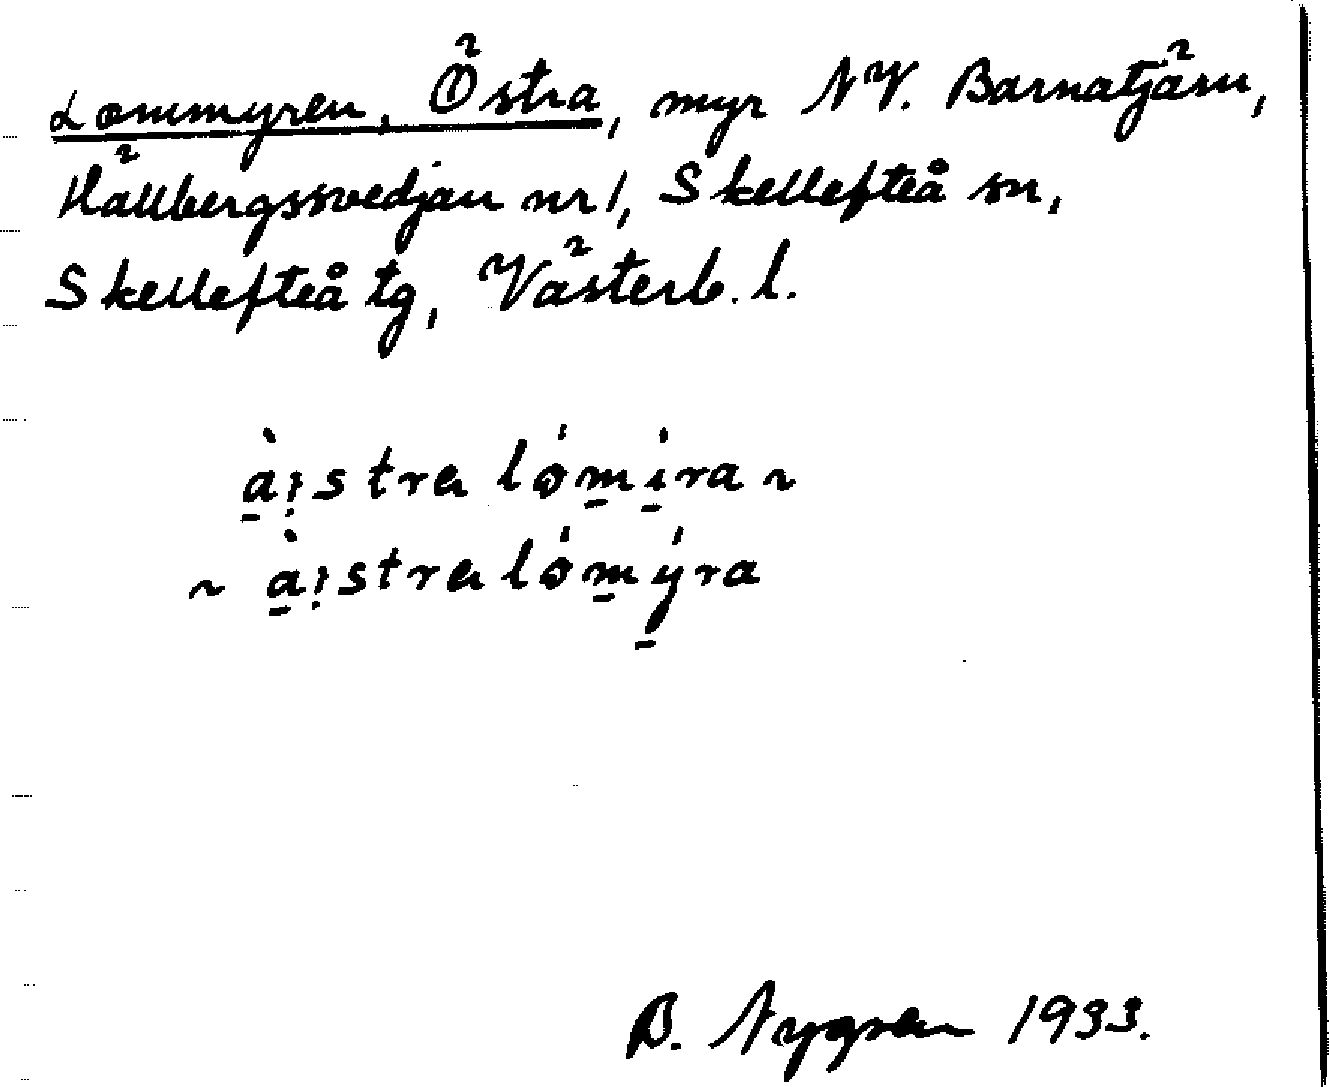 Lommyren, Östra, myr NV. Barnatjärn,
Hällbergssvedjan nr 1, Skellefteå sn,
Skellefteå tg, Västerb. l.
à̱i̜stra lóm̱i̱ra ~
~ à̱i̜stra lóm̱ý̱ra
B. Nygren 1933.